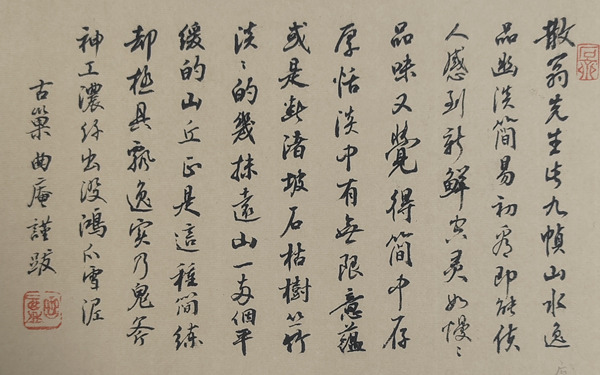 散翁先生此九幀山水逸
品幽淡簡易初看即能使
人感到新鮮空靈如慢〻
品味又覺得簡中存
厚恬淡中有無限意蘊
或是斷渚坡石枯樹竹
淡〻的幾抹遠山一兩個平
緩的山丘正是這種簡練
却極具飄逸實乃鬼斧
神工濃纤出没鴻爪雪泥
古巢曲庵謹跋